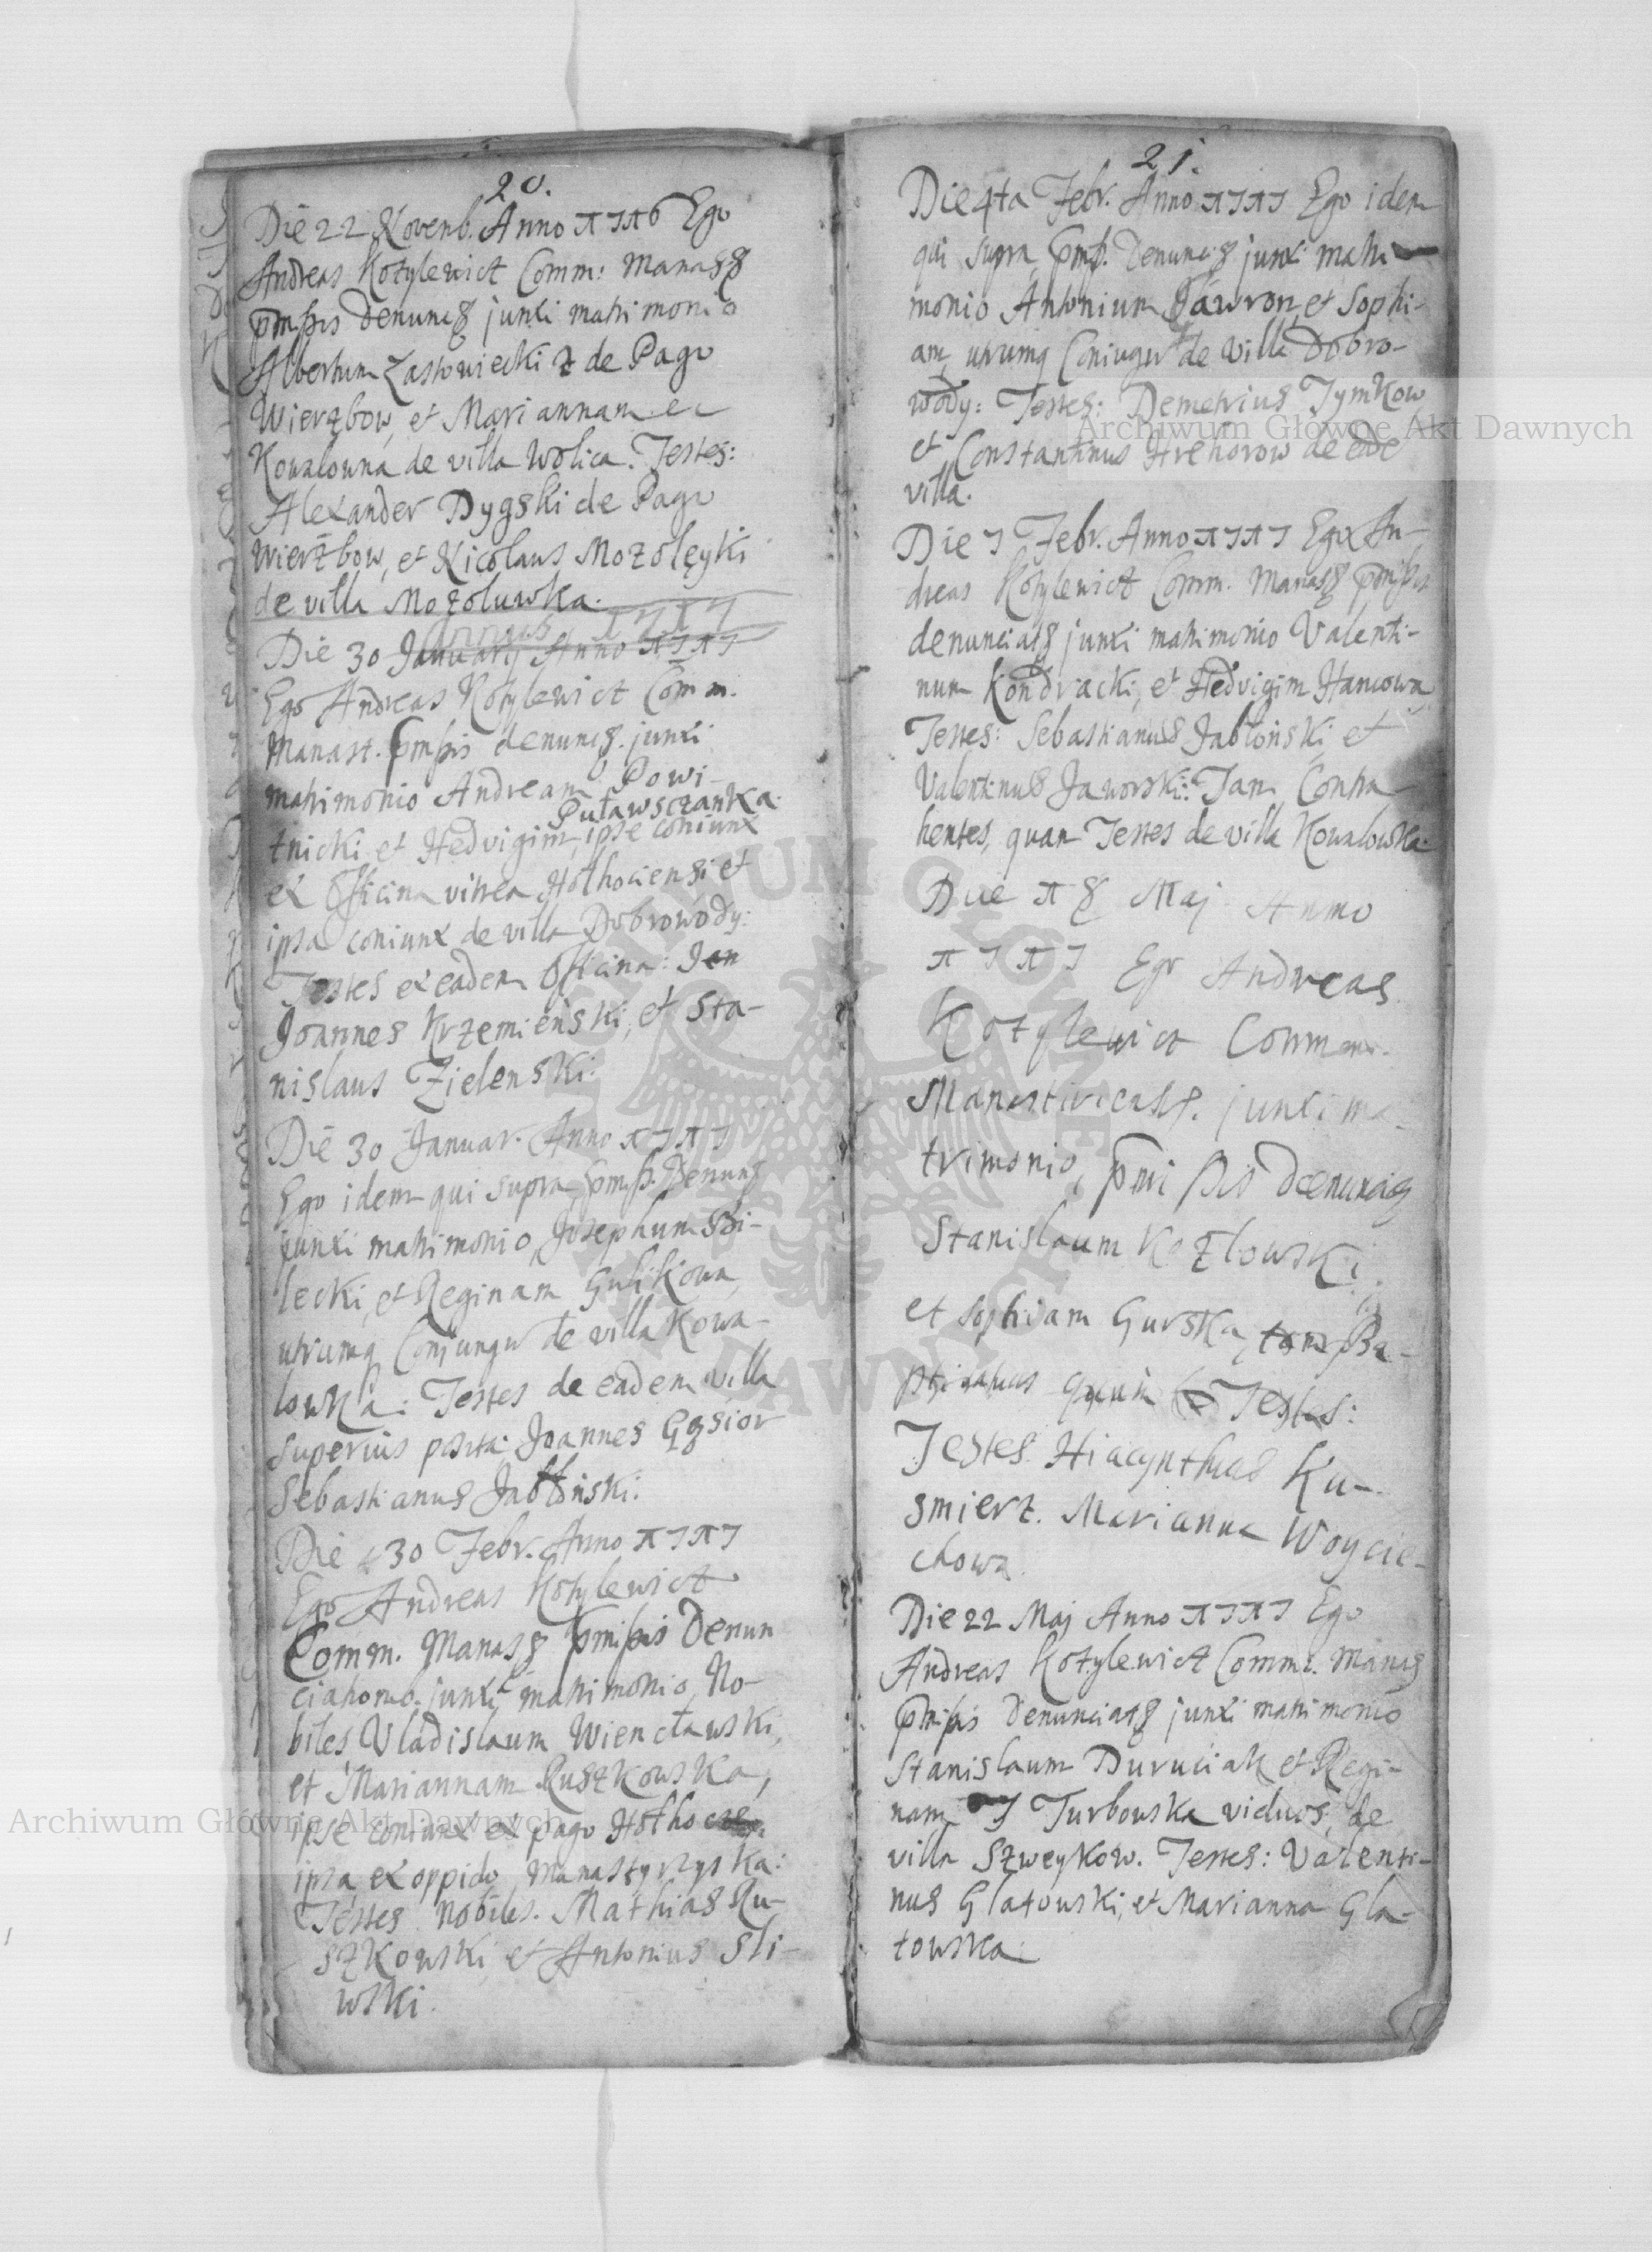 20.
Die 22 Novemb. Anno 1716 Ego
Andreas Kotylewicz Comm: Manas
pmissis denunc junxi matrimonio
Albertum Zastowiecki de Pago
Wierzbow, et Mariannam
Kowalowna de villa Wolica. Testes:
Alexander Dygski de Pago
Wierzbow, et Nicolaus Mozoleyki
de villa Mozoluwka.
annus 1717
Die 30 Januarij Anno 1717
Ego Andreas Kotylewicz Comm.
Manast. pmissis denunc. junxi
matrimonio Andream Powi-
Puławsczanka
tnicki, et Hedvigim, ipse coniunx
ex Officina vitrea Hothociensi et
ipsa coniunx de villa Dobrowody:
Testes ex eadem Officina: Jan
Joannes Krzemieński, et Sta-
nislaus Zielenski:
Die 30 Januar. Anno 1717
Ego idem qui supra pmiss. Denun
junxi matrimonio Josephum
lecki, et Reginam Gulikowa,
utrumq Coniungu de villa Kowa-
lowka: Testes de eadem villa
superius posita: Joannes Gąsior
Sebastianus Jabłoński:
Die 30 Febr. Anno 1717
Ego Andreas Kotylewicz
Comm. Manas pmissis Denun
ciationib. junxi matrimonio No-
biles Vladislaum Wiencławski,
et Mariannam Ruszkowska,
ipse coniunx ex pago
ipsa ex oppido Manastyrzyska:
Testes Nobiles. Mathias Ru-
szkowski, et Antonius Sli-
wski.
21.
Die 4ta Febr. Anno 1717 Ego idem
qui supra, pmiss. Denunc junxi matri
monio Antonium Gawron, et Sophi-
am, utrumq Coniugu de Villa Dobro-
wody: Testes: Demetrius Tymkow
et Constantinus Hrehorow de eade
villa.
Die 7 Febr. Anno 1717 Ego An-
dreas Kotylewicz Comm. Manas pmissis
denunciats junxi matrimonio Valenti-
num Kondracki, et Hedvigim Hancowa
Testes: Sebastianus Jabłoński, et
Valentinus Jaworski: Tam Contra-
hentes, quam Testes de villa Kowalowka.
Die 18 Maj Anno
1717 Ego Andreas
Kotylewicz Comm
junxi ma-
trimonio, pmissis denunciats
Stanislaum Kozlowski,
et Sophiam Gurska, tam Ba-
quam Testes:
Testes Hiacynthus Ku-
smierz. Marianna Woycie-
chowa.
Die 22 Maj Anno 1717 Ego
Andreas Kotylewicz Comm. Manas
pmissis denunciats junxi matrimonio
Stanislaum Duruciak et Regi-
nam Turbowska viduos, de
villa Szweykow. Testes: Valenti-
nus Glatowski, et Marianna Gla-
towska
Archiwum Główne Akt Dawnych
Archiwum Główne Akt Dawnych
ARCHIWUM GŁÓWNE AKT DAWNYCH